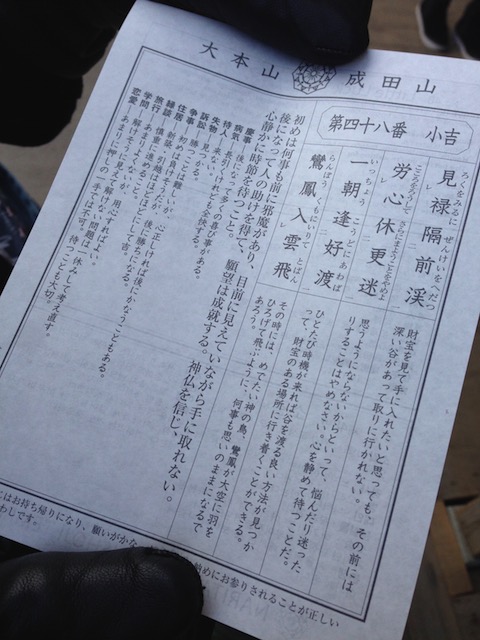 大本山 成田山
第四十八番 小吉
ろくをみるに ぜんけいをへだつ
見レ禄隔二前渓一
こころをろうして さらにまようことをやめよ
労レ心休二更迷一
いっちょう こうとにあわば
一朝逢二好渡一
らんぽう くもにいりてとばん
鸞鳳入レ雲飛
財宝を見て手に入れたいと思っても、その前には
深い谷があって取りに行かれない。
思うようにならないからといって、悩んだり迷った
りすることはやめなさい。心を静めて待つことだ。
ひとたび時機が来れば谷を渡る良い方法が見つか
って、財宝のある場所に行き着くことができる。
その時には、めでたい神の鳥、鸞鳳が大空に羽を
ひろげて飛ぶように、何事も思いのままになるで
あろう。
初めは何事も前に邪魔があり、目前に見えていながら手に取れない。
後になって人の助けを得て、願望は成就する。神仏を信じ、
心静かに時節を待つこと。
慶事
後になって多くの喜び事がある。
病気
長引くけれども全快する。
待人
来ない。
失物
見つかる。
訴訟
勝つ。
争事
住居
初めは身は難しいが、心正しければ後にかなうこともある。
縁談
新築、引越などはよい。
旅行
慎重に進めれば
学問
恋愛
あまりに押しの一手は不可。待つことも大切。
はお持ち帰りになり、願いがかな
始めにお参りされることが正しい
わしです。